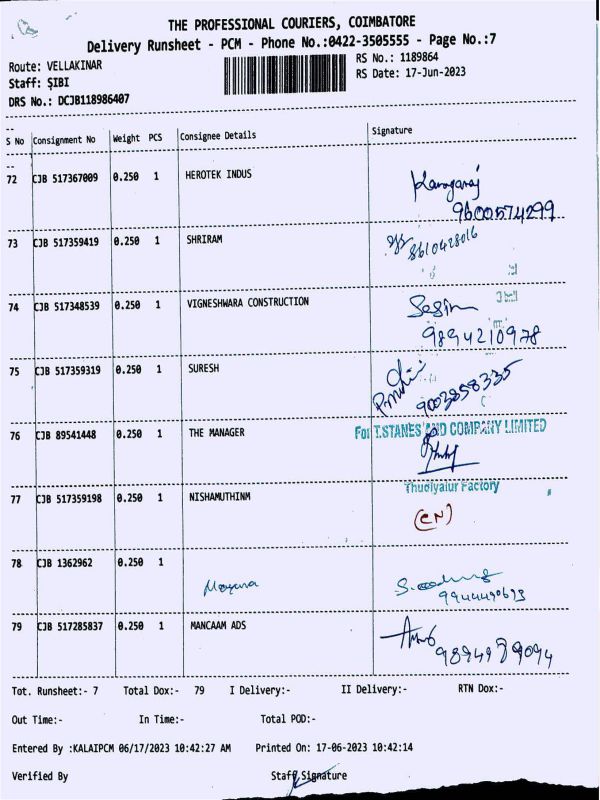 THE PROFESSIONAL COURIERS, COIMBATORE
Delivery Runsheet - PCM - Phone No.:0422-3505555 - Page No.:7
Route: VELLAKINAR
RS No.: 1189864
Staff: ŞIBI
RS Date: 17-Jun-2023
DRS No.: DCJB118986407
S No Consignment No Weight PCS Consignee Details Signature
72 CJB 517367009 0.250 1 HEROTEK INDUS
9600574299
73 CJB 517359419 0.250 1 SHRIRAM
8610428016
74 CJB 517348539 0.250 1 VIGNESHWARA CONSTRUCTION
9894210978
75 CJB 517359319 0.250 1 SURESH
9003858335
76 CJB 89541448 0.250 1 THE MANAGER
For T.STANES AND COMPANY LIMITED
Thudiyalur Factory
77 CJB 517359198 0.250 1 NISHAMUTHINM
(CN)
78 CJB 1362962 0.250 1
9944490693
79 CJB 517285837 0.250 1 MANCAAM ADS
9894989094
Tot. Runsheet:- 7 Total Dox:- 79 I Delivery:- II Delivery:- RTN Dox:-
Out Time:- In Time:- Total POD:-
Entered By :KALAIPCM 06/17/2023 10:42:27 AM Printed On: 17-06-2023 10:42:14
Verified By Staff Signature